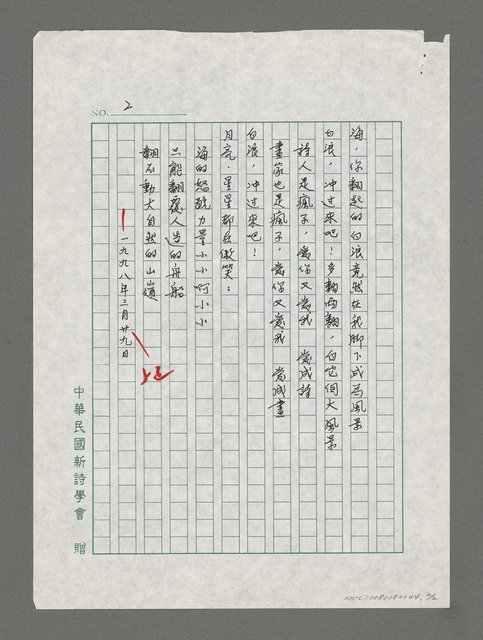 NO. 2
海，你翻起的白浪竟然在我腳下成為風景
白浪，冲过来吧！多翻兩翻，白它個大風景
詩人是瘋子，愛你又愛我　愛成詩
畫家也是瘋子，愛你又愛我　愛成畫
白浪，冲过来吧！
月亮、星星都在微笑：
海的怒號力量小小啊小小
只能翻覆人造的舟船
翻不動大自然的山嶺
一九九八年三月廿九日
中華民國新詩學會　贈